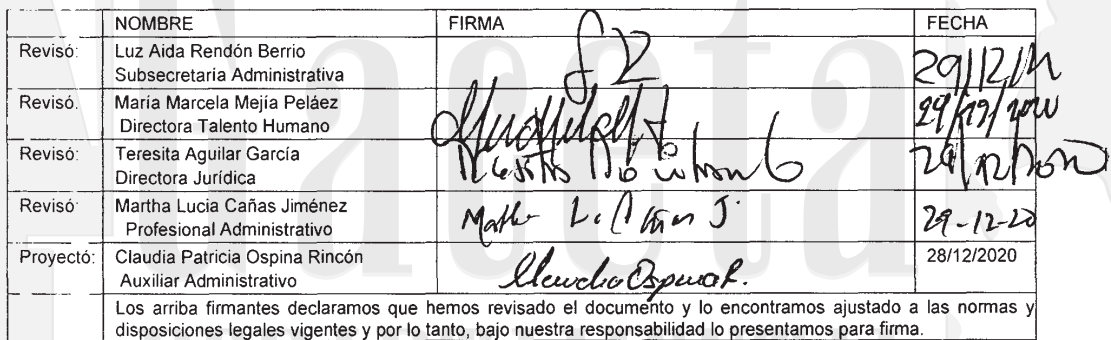 NOMBRE FIRMA FECHA
Revisó: Luz Aida Rendón Berrio
Subsecretaría Administrativa
29/12/
Revisó. María Marcela Mejía Peláez
Directora Talento Humano
29/12/2020
Revisó: Teresita Aguilar García
Directora Jurídica
29/12/2020
Revisó Martha Lucia Cañas Jiménez Martha L. Cañas J.
Profesional Administrativo 29-12-20
Proyectó: Claudia Patricia Ospina Rincón 28/12/2020
Auxiliar Administrativo Claudia Ospina R.
Los arriba firmantes declaramos que hemos revisado el documento y lo encontramos ajustado a las normas y
disposiciones legales vigentes y por lo tanto, bajo nuestra responsabilidad lo presentamos para firma.